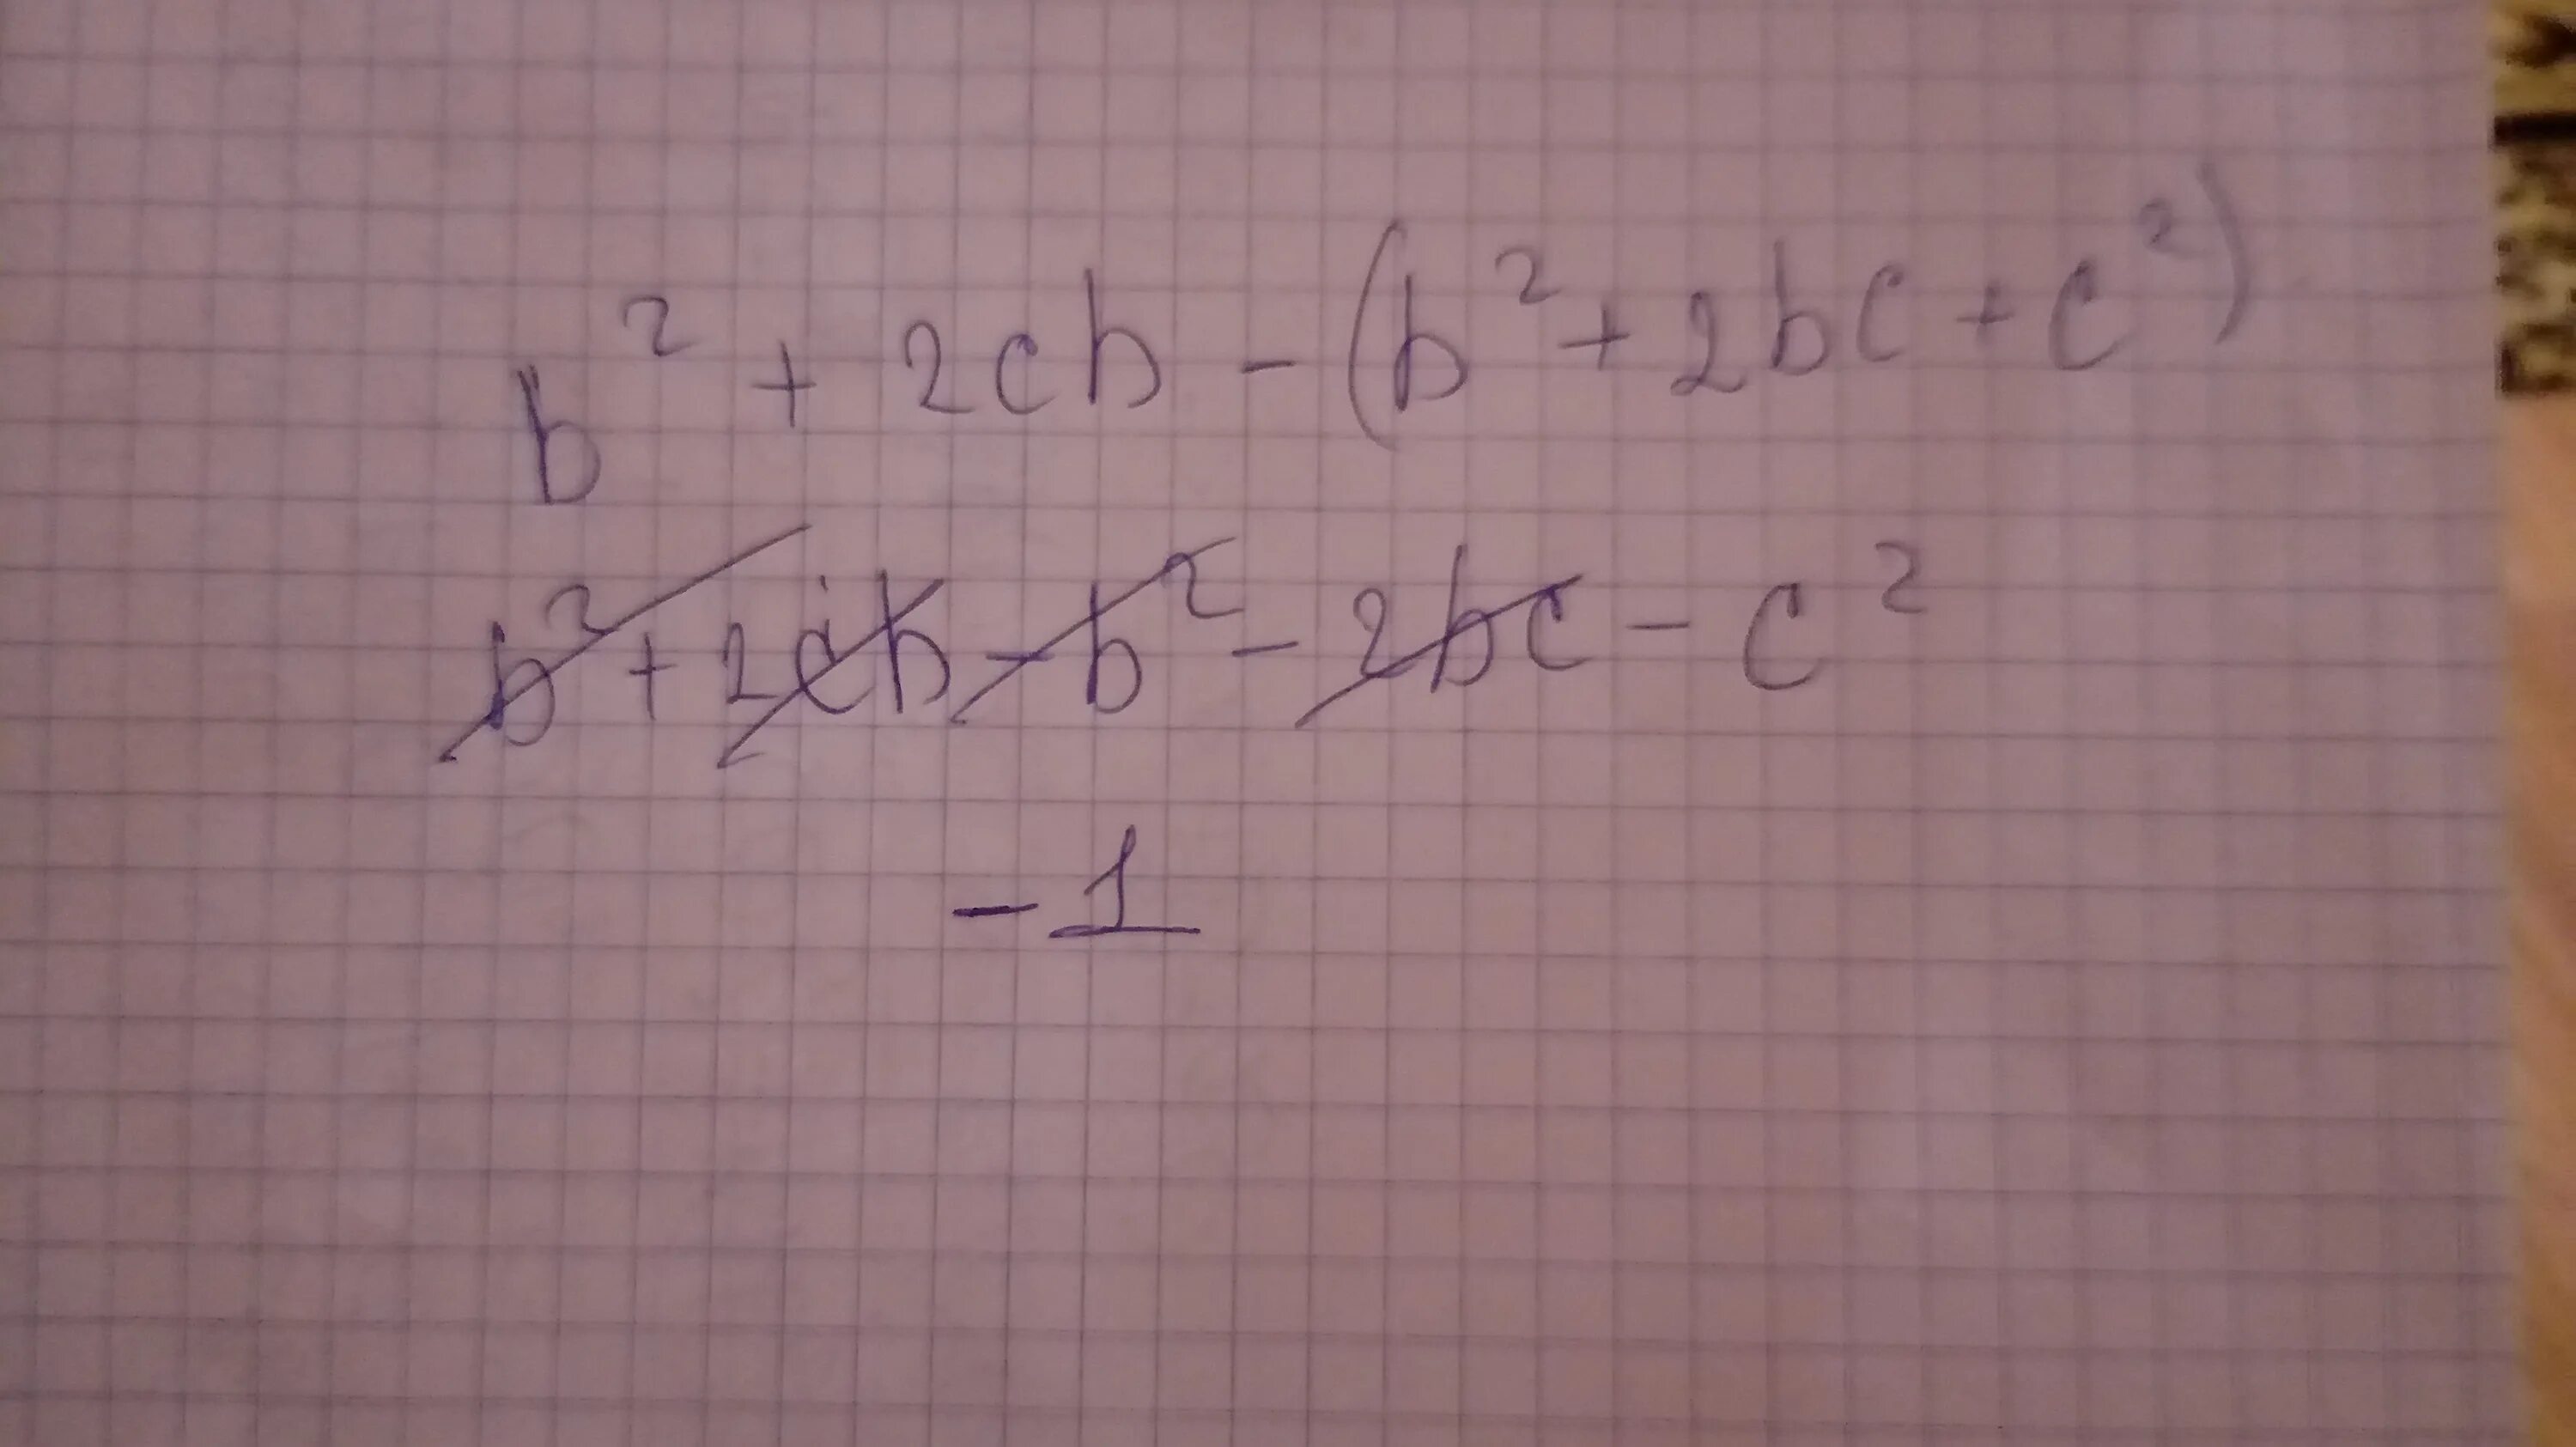 b² + 2cb - (b² + 2bc + c²)
b² + 2cb - b² - 2bc - c²
- 1